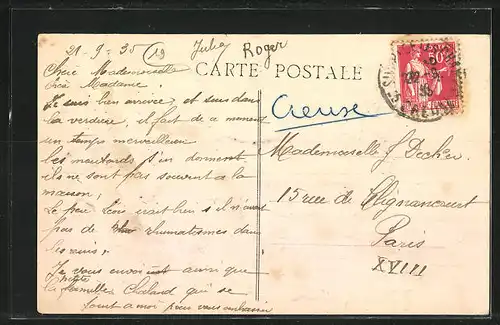 21-9-35
19
Roger
CARTE POSTALE
Creuse
50c
Chère Mademoiselle
Chère Madame,
Je suis bien arrivée, et suis dans
la verdure, il fait de a moment
un temps merveilleux
les moutards s'en donnent
ils ne sont pas souvent a la
maison;
Le père Léon irait bien s il n'avait
pas de rhumatismes dans
les reins;
Je vous ainsi que
la famille qui se
pour vous embrasser
Mademoiselle J Decker
15 rue de Clignancourt
Paris
XVIII